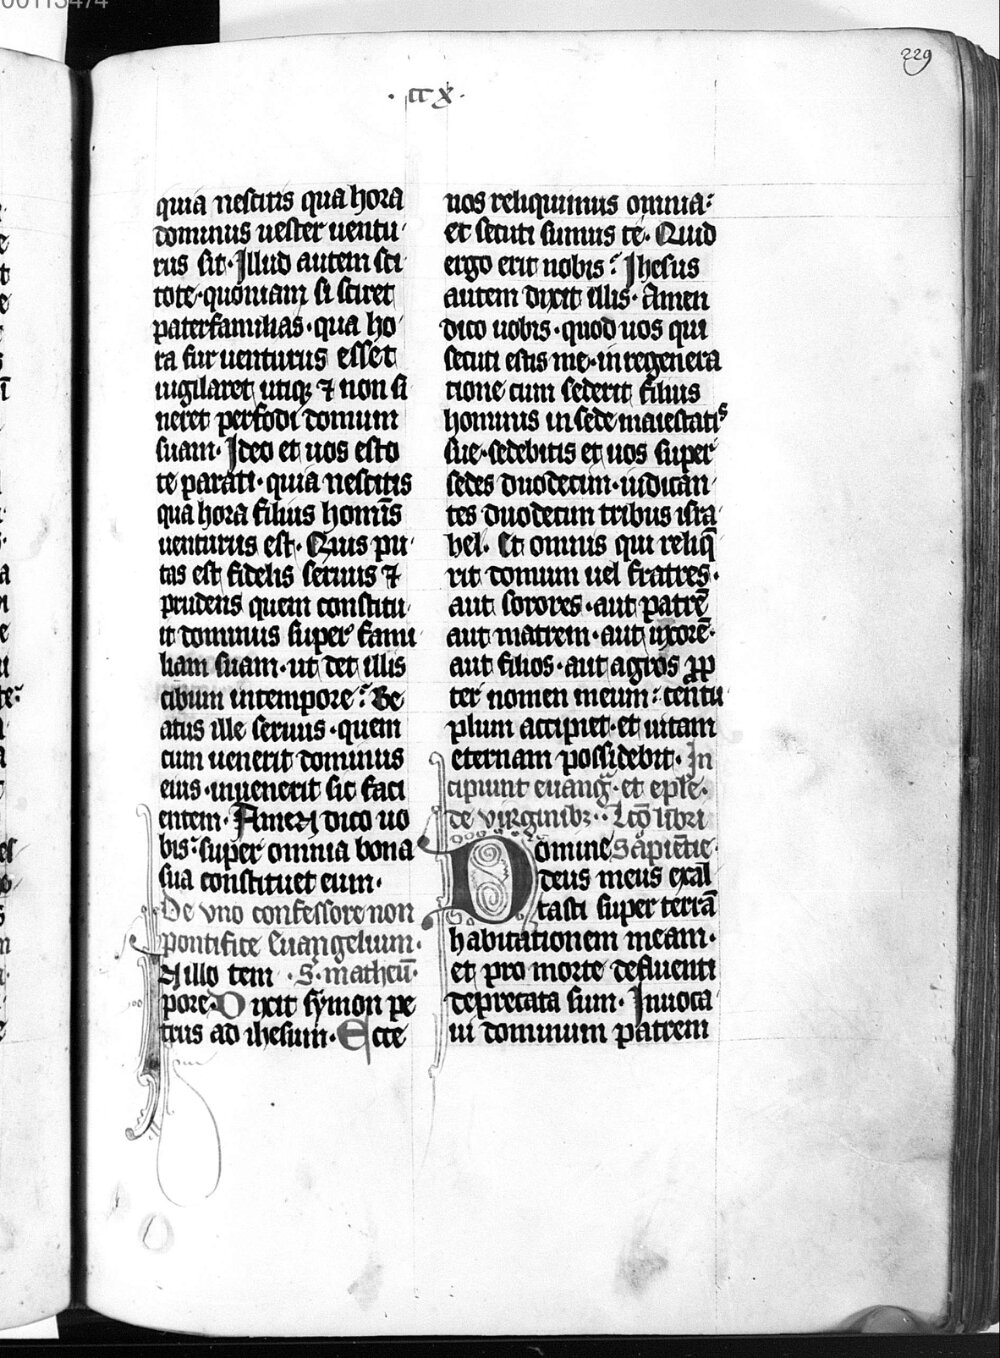 00113474
229
·ccx·
quia nescitis qua hora
dominus uester uentu
rus sit· Illud autem sci
tote· quoniam si sciret
paterfamilias· qua ho
ra fur uenturus esset
uigilaret utiqꝫ ⁊ non si
neret perfodi domum
suam· Ideo et uos esto
te parati· quia nescitis
qua hora filius homīs
uenturus est· Quis pu
tas est fidelis seruus ⁊
prudens quem constitu
it dominus super fami
liam suam· ut det illis
cibum in tempore? Be
atus ille seruus· quem
cum uenerit dominus
eius· inuenerit sic faci
entem· Amen dico uo
bis: super omnia bona
sua constituet eum·
De vno confessore non
pontifice Euangelium·
IN illo tem ·S· matheū·
pore· Dixit symon pe
trus ad ihesum· Ecce
uos reliquimus omnia:
et secuti sumus te· Quid
ergo erit nobis? Ihesus
autem dixit illis· Amen
dico uobis· quod uos qui
secuti estis me· in regenera
tione cum sederit filius
hominis in sede maiestatis
sue· sedebitis et uos super
sedes duodecim· iudican
tes duodecim tribus isra
hel· Et omnis qui reliq̄
rit domum uel fratres·
aut sorores· aut patrē
aut matrem· aut uxorē·
aut filios· aut agros ꝓp
ter nomen meum: centu
plum accipiet· et uitam
eternam possidebit· In
cipiunt euanḡ· et eple·
de virginibꝫ·· Lc̄o libri
Domine Sapiēcie·
deus meus exal
tasti super terrā
habitationem meam·
et pro morte defluenti
deprecata sum· Inuoca
ui dominum patrem